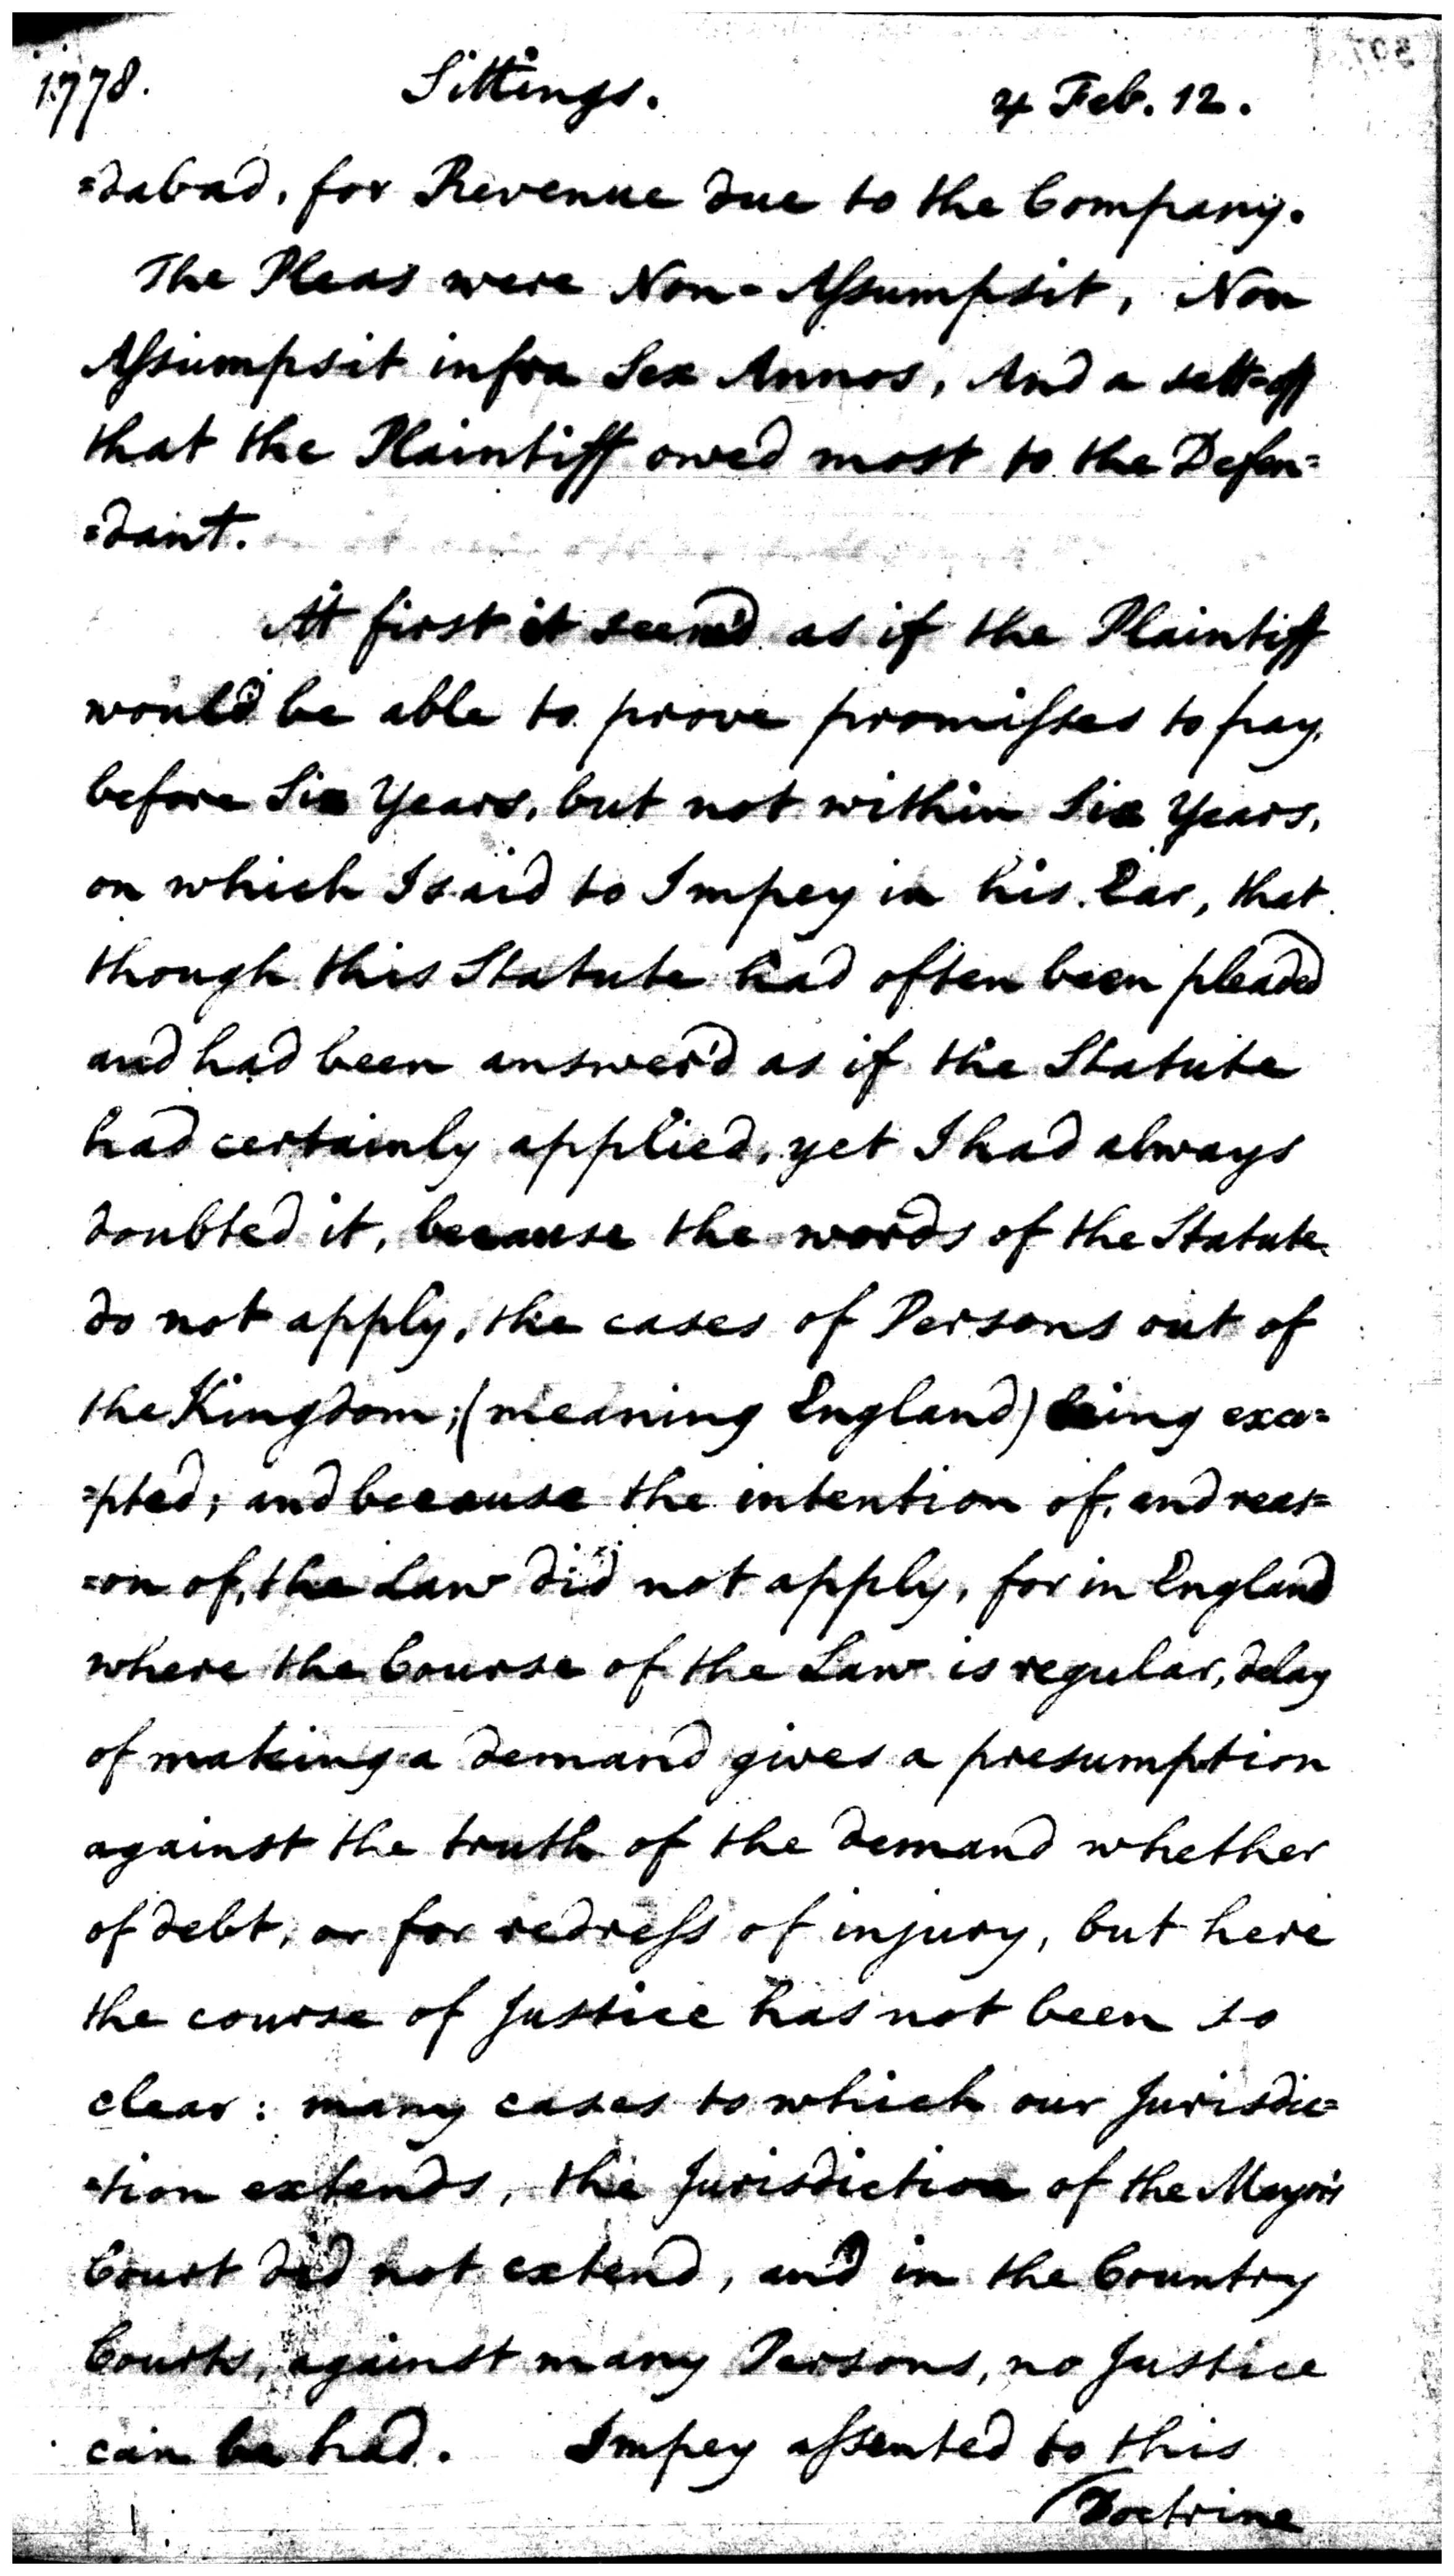 1778. Sittings. 4 Feb. 12.
=dabad, for Revenue due to the Company.
The Pleas were Non-Assumpsit, Non
Assumpsit infra Sex Annos, And a sett-off
that the Plaintiff owed most to the Defen=
=dant.
At first it seem'd as if the Plaintiff
would be able to prove promisses to pay,
before Six Years, but not within Six Years,
on which I said to Impey in his Ear, that
though this Statute had often been pleaded
and had been answer'd as if the Statute
had certainly applied, yet I had always
doubted it, because the words of the Statute
do not apply, the cases of Persons out of
the Kingdom, (meaning England) being exce=
=pted; and because the intention of, and reas=
=on of, the Law did not apply, for in England
where the Course of the Law is regular, delay
of making a demand gives a presumption
against the truth of the demand whether
of debt, or for redress of injury, but here
the course of Justice has not been so
clear: many cases to which our Jurisdic=
=tion extends, the Jurisdiction of the Mayor's
Court did not extend, and in the Country
Courts, against many Persons, no Justice
can be had. Impey assented to this
Doctrine